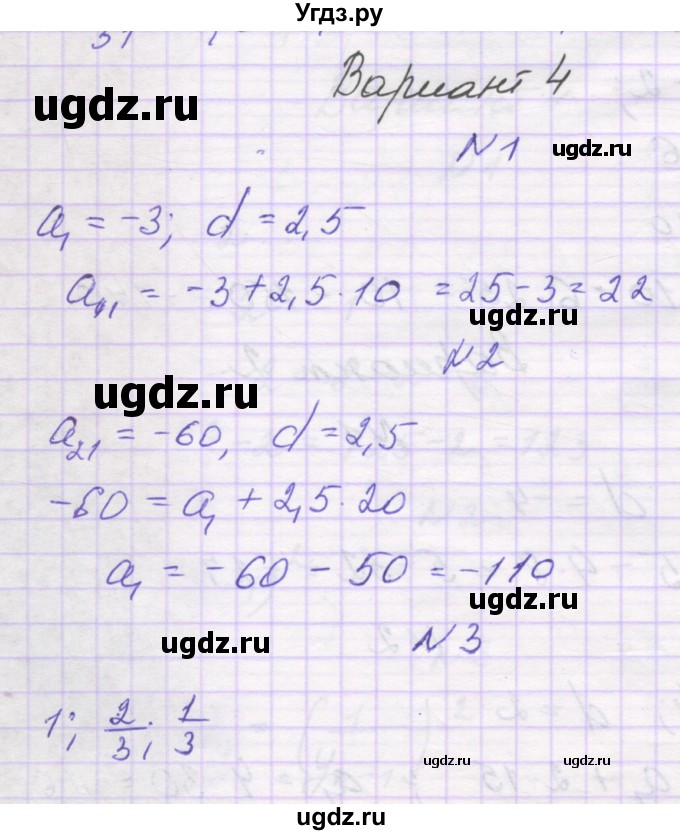 Угдз.ру
Вариант 4
ugdz.ru
N1 ugdz.ru
a₁ = -3; d = 2,5
a₁₁ = -3+2,5·10 = 25-3 = 22
ugdz.ru
N2
ugdz.ru
a₂₁ = -60, d = 2,5
-60 = a₁ + 2,5·20
a₁ = -60 - 50 = -110
ugdz.ru
ugdz.ru N3
1; 2/3; 1/3
ugdz.ru ugdz.ru
Угдз.ру